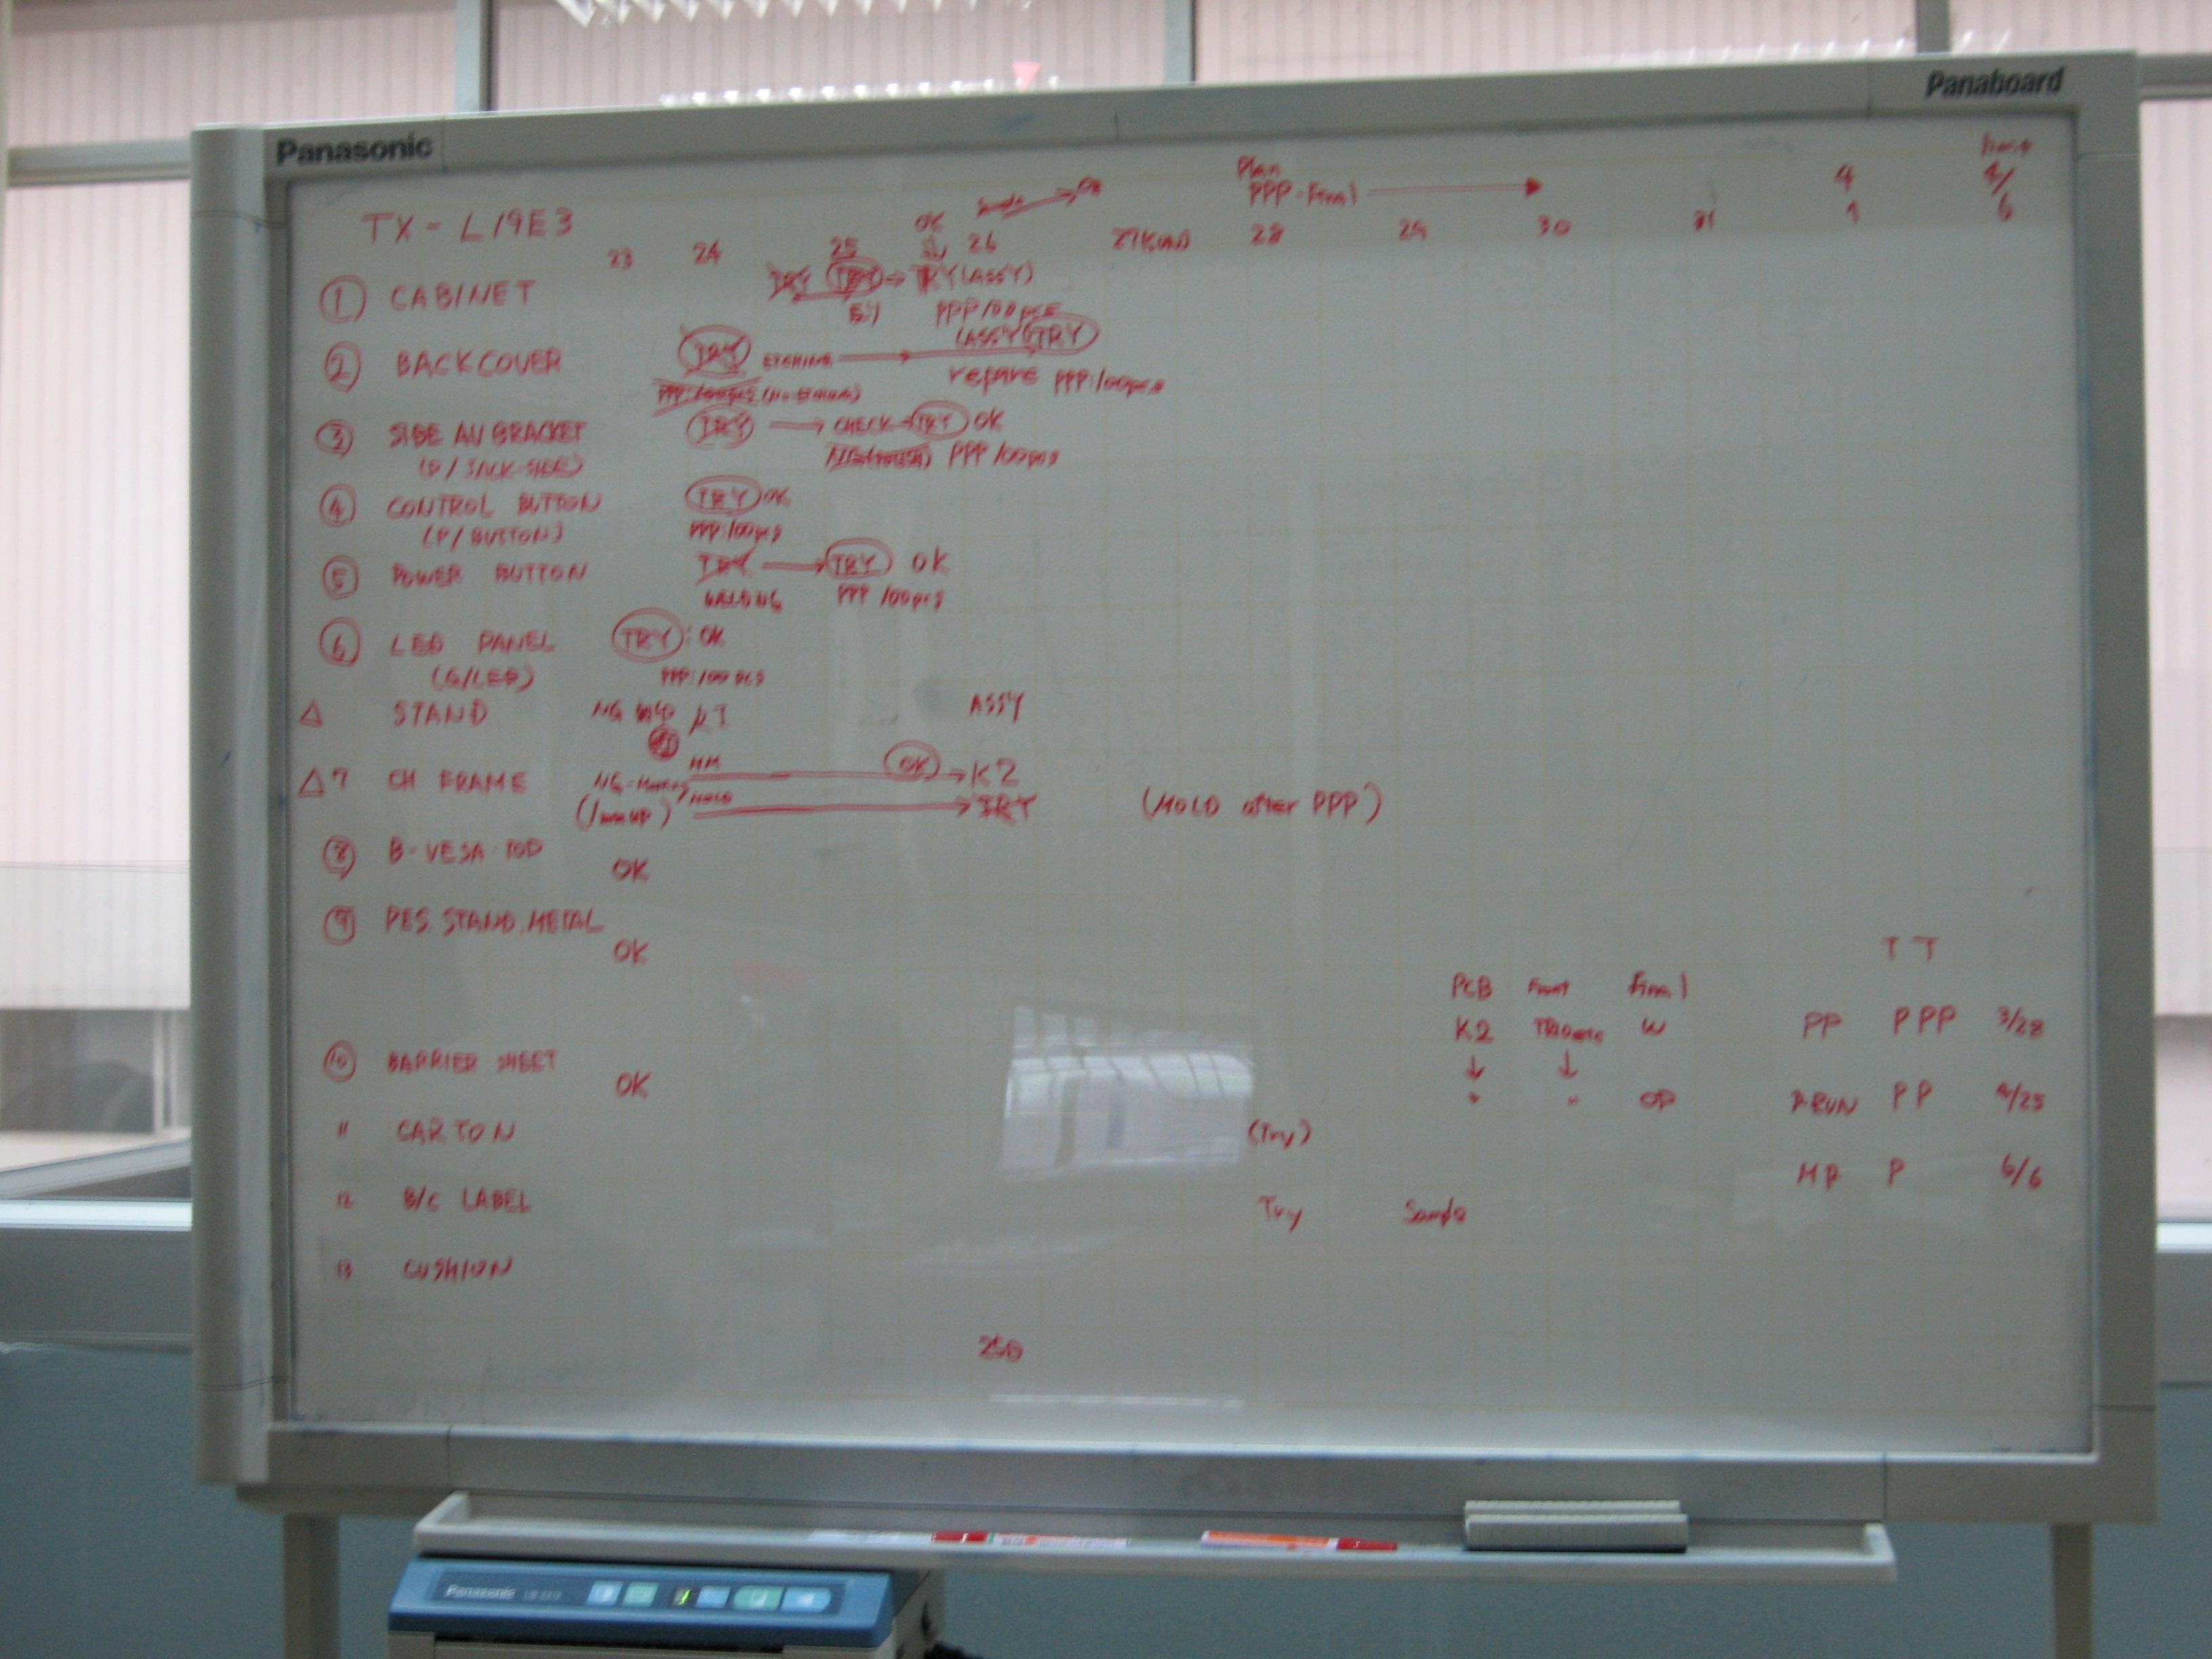 Panasonic
Panaboard
Plan
PPP-Final
4
TX-L19E3
OK
23 24 25 26 27(SUN) 28 29 30 31 1 6
① CABINET TRY TRY TRY(ASSY)
PPP/100pcs
② BACKCOVER TRY ETCHING (ASSY) TRY
repare PPP:100pcs
③ SIDE AV BRACKET TRY CHECK TRY OK
(P/JACK-SIDE) PPP/100pcs
④ CONTROL BUTTON TRY OK
(P/BUTTON) PPP:100pcs
⑤ POWER BUTTON TRY TRY OK
PPP 100pcs
⑥ LED PANEL TRY: OK
(G/LED) PPP:100pcs
△ STAND NG ASSY
△7 CH FRAME NG OK K2
TRY (MOLD after PPP)
⑧ B-VESA-TOP OK
⑨ PES.STAND.METAL OK
TT
PCB Front Final
K2 W PP PPP 3/28
⑩ BARRIER SHEET OK
" " OP P-RUN PP 4/25
11 CARTON (Try)
MP P 6/6
12 B/C LABEL Try Sample
13 CUSHION
250
Panasonic